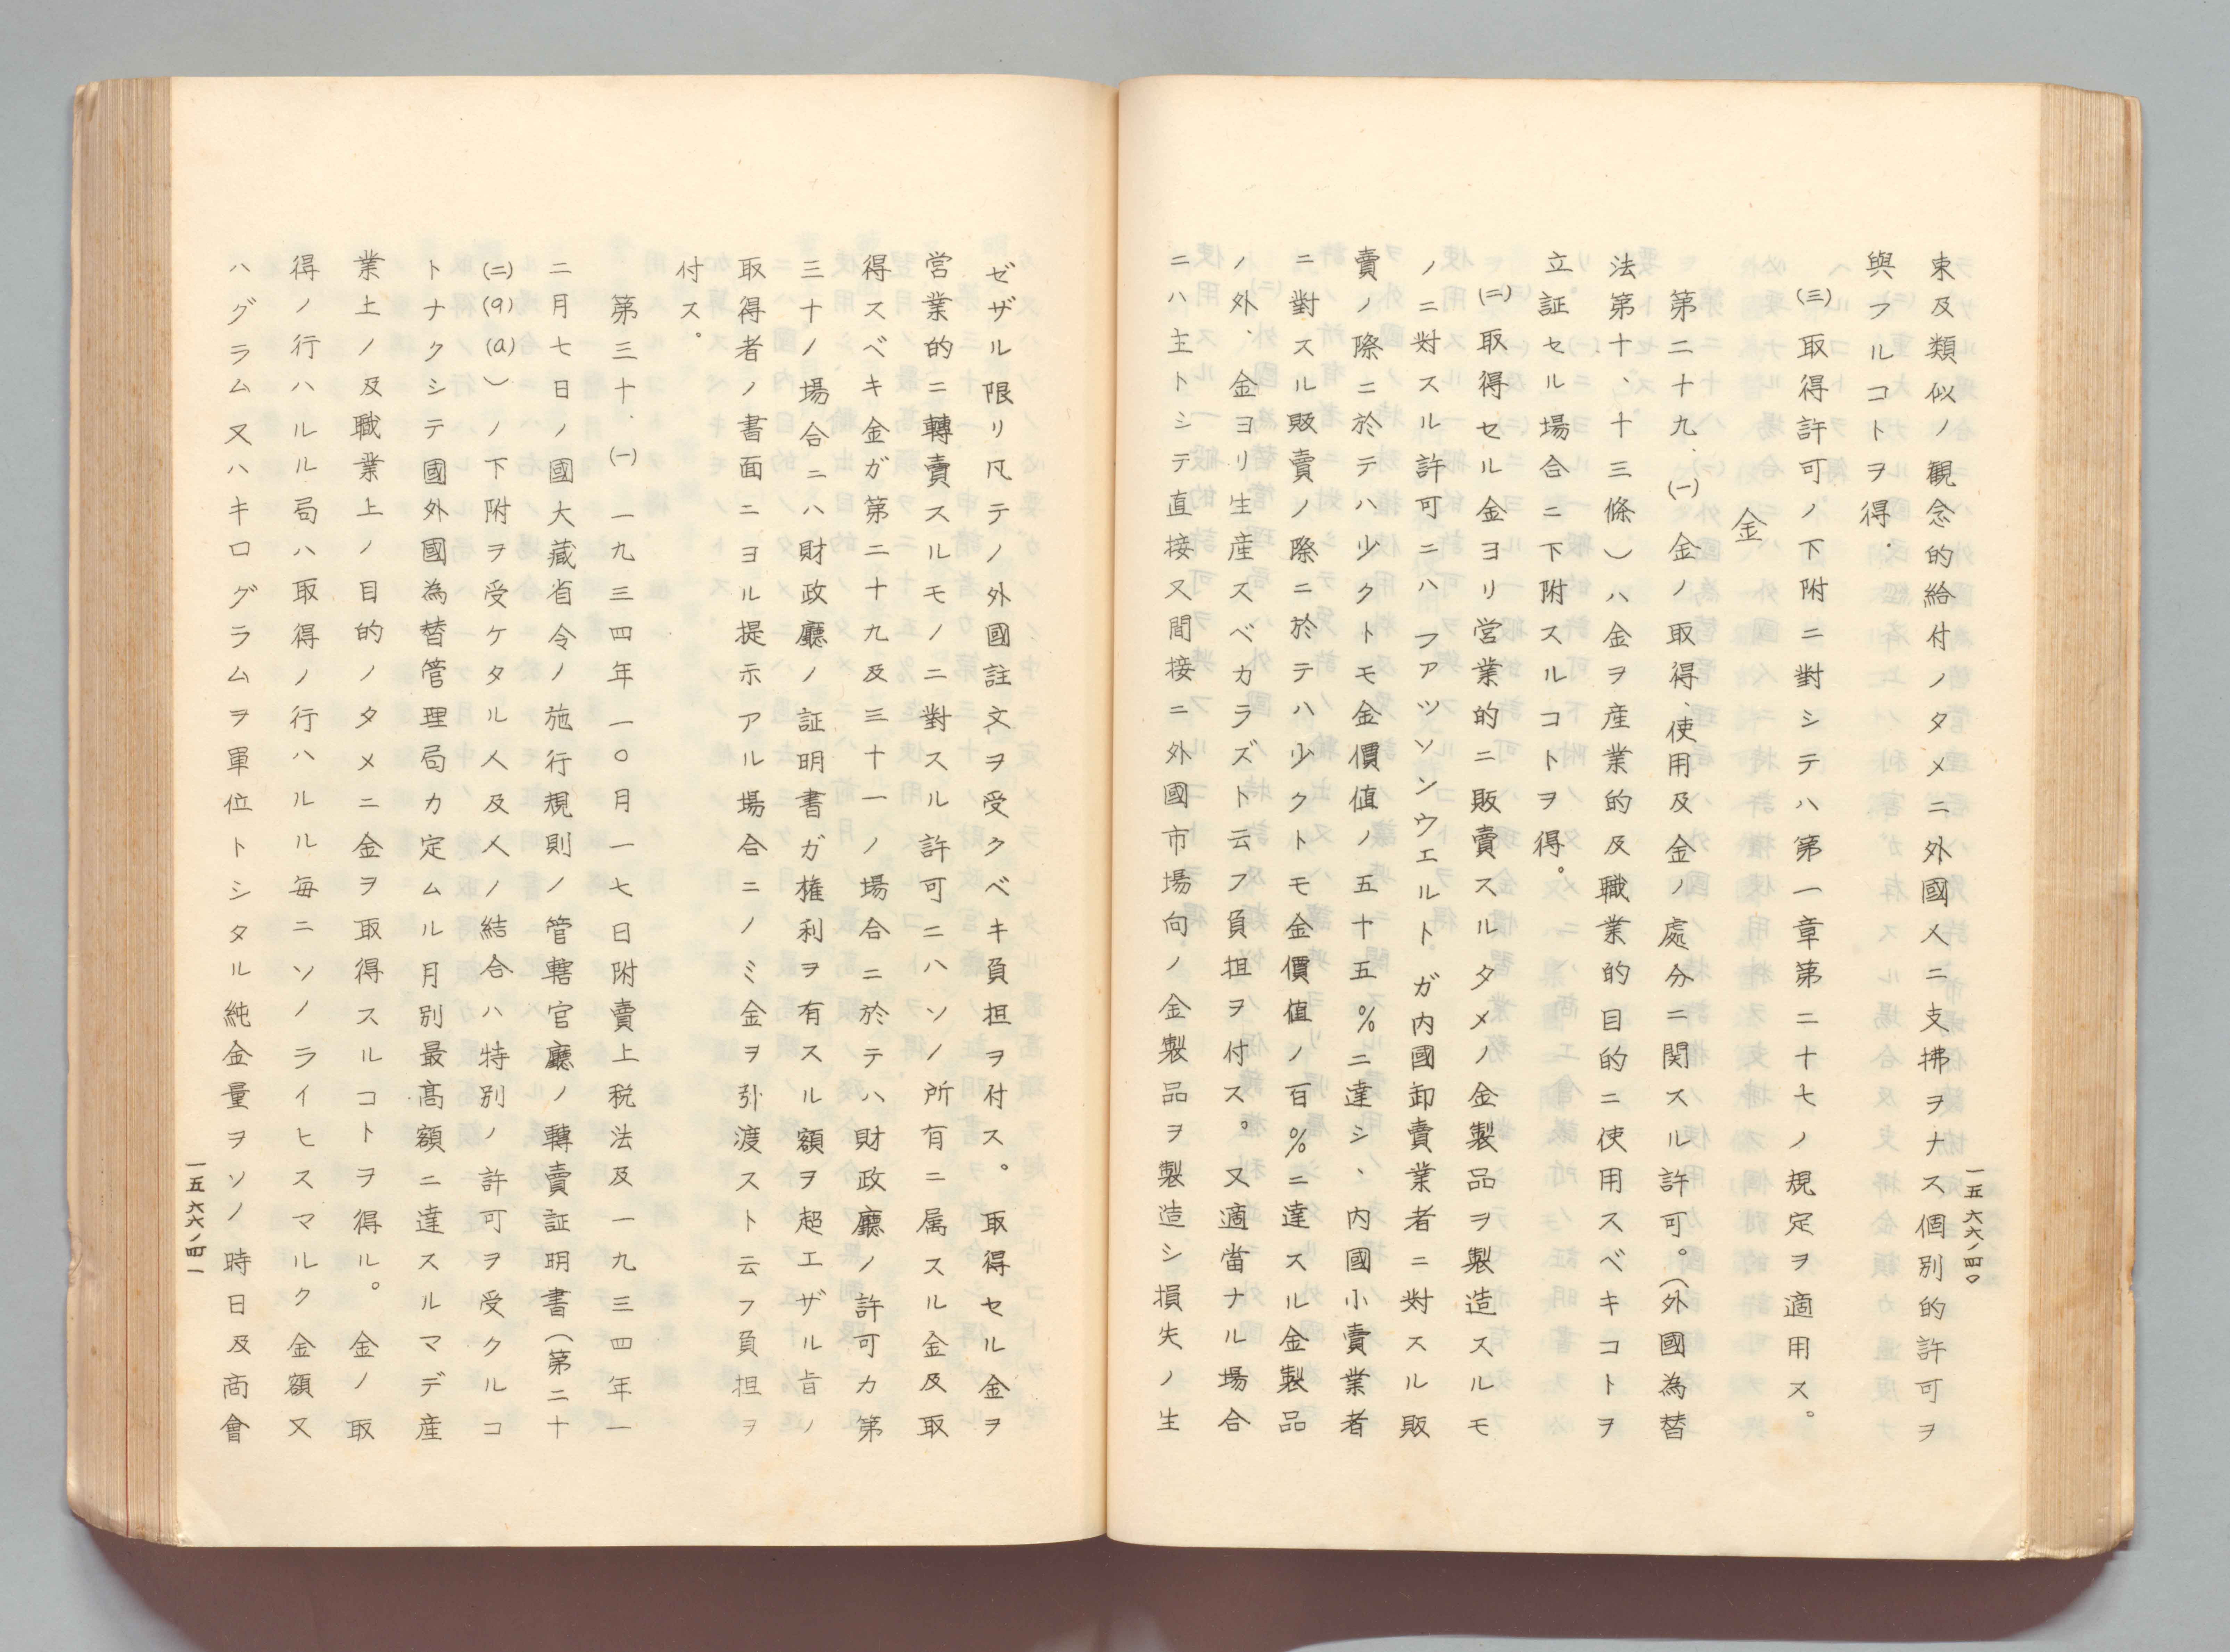 束及類似ノ観念的給付ノタメニ外國人ニ支拂ヲナス個別的許可ヲ
與フルコトヲ得.
(三)取得許可ノ下附ニ對シテハ第一章第二十七ノ規定ヲ適用ス。
金
第二十九、(一)金ノ取得、使用及金ノ處分ニ関スル許可。(外國為替
法第十、十三條)ハ金ヲ産業的及職業的目的ニ使用スベキコトヲ
立証セル場合ニ下附スルコトヲ得。
(二)取得セル金ヨリ営業的ニ販賣スルタメノ金製品ヲ製造スルモ
ノニ対スル許可ニハ ファッソンウエルト ガ内國卸賣業者ニ対スル販
賣ノ際ニ於テハ少クトモ金價値ノ五十五%ニ達シ、内國小賣業者
ニ對スル販賣ノ際ニ於テハ少クトモ金價値ノ百%ニ達スル金製品
ノ外、金ヨリ生産スベカラズト云フ負担ヲ付ス。又適當ナル場合
ニハ主トシテ直接又間接ニ外國市場向ノ金製品ヲ製造シ損失ノ生
一五六六ノ四〇
ゼザル限リ凡テノ外國註文ヲ受クベキ負担ヲ付ス。取得セル金ヲ
営業的ニ轉賣スルモノニ對スル許可ニハソノ所有ニ属スル金及取
得スベキ金ガ第二十九及三十一ノ場合ニ於テハ財政廳ノ許可カ第
三十ノ場合ニハ財政廳ノ証明書ガ権利ヲ有スル額ヲ超エザル旨ノ
取得者ノ書面ニヨル提示アル場合ニノミ金ヲ引渡スト云フ負担ヲ
付ス。
第三十.(一)一九三四年一〇月一七日附賣上税法及一九三四年一
二月七日ノ國大蔵省令ノ施行規則ノ管轄官廳ノ轉賣証明書(第二十
(二)(9)(a))ノ下附ヲ受ケタル人及人ノ結合ハ特別ノ許可ヲ受クルコ
トナクシテ國外國為替管理局カ定ムル月別最高額ニ達スルマデ産
業上ノ及職業上ノ目的ノタメニ金ヲ取得スルコトヲ得ル。金ノ取
得ノ行ハルル局ハ取得ノ行ハルル毎ニソノライヒスマルク金額又
ハグラム又ハキログラムヲ單位トシタル純金量ヲソノ時日及商會
一五六六ノ四一